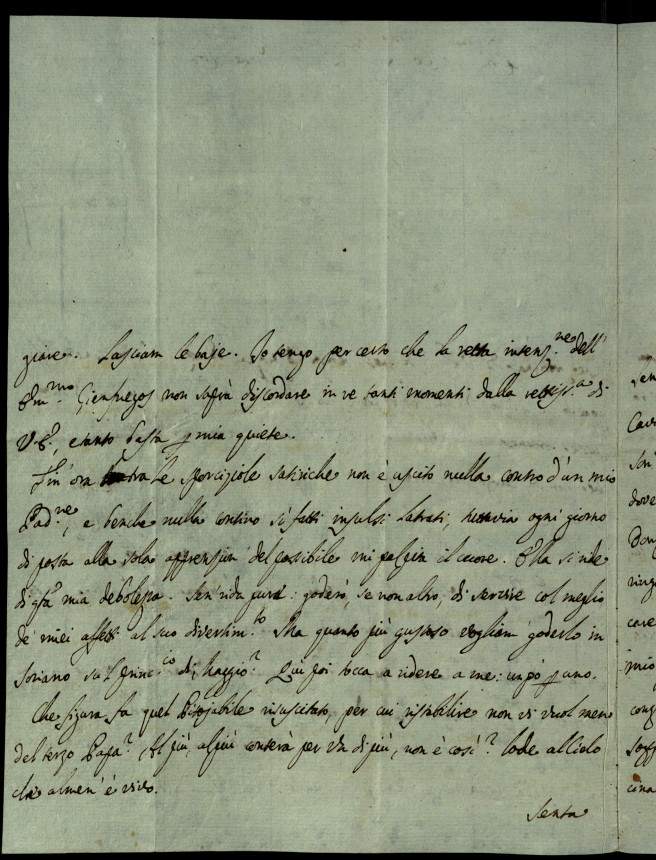 giare. Lasciam le baje. Io tengo per certo che la retta intenz.ne dell'
Em.mo Cienfuegos non saprà discordare in re tanti momenti dalla rettiss.a di
V. E., e tanto basta p mia quiete.
Fin'ora tra le sporcizie satiriche non è uscito nulla contro d'un mio
Pad.ne, e benche nulla contino sì fatti insulsi latrati, tuttavia ogni giorno
di posta alla sola apprension' del possibile mi palpita il cuore. Ella si ride
di qsta mia debolezza. Sen' rida pure: goderò, se non altro, di servire col meglio
de' miei affetti al suo divertim.to Ma quanto più gustoso vogliam' goderlo in
Soriano su'l princ.io di Maggio? Qui poi tocca a ridere a me: un pò p uno.
Che figura fa quel Possibile risuscitato, per cui ristabilire non vi vuol men
del terzo Papa? Al più, al più conterà per un di più, non è così? Lode al Cielo
che almen' è vivo.
Senta
cina